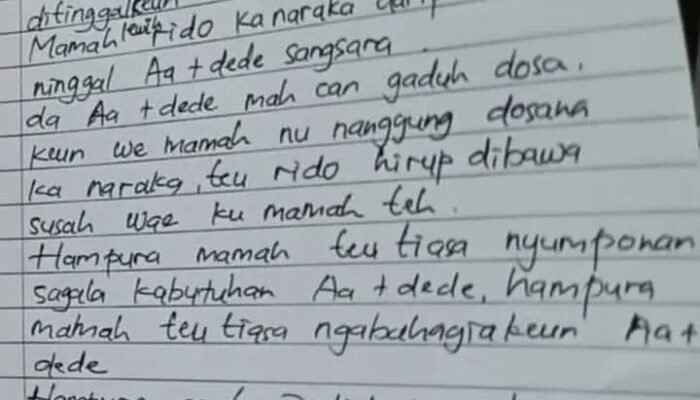 ditinggalkeun
Mamah leuwih rido ka naraka
ninggal Aa + dede sangsara.
da Aa + dede mah can gaduh dosa.
keun we mamah nu nanggung dosana
ka naraka, teu rido hirup dibawa
susah wae ku mamah teh.
Hampura mamah teu tiasa nyumponan
sagala kabutuhan Aa + dede, hampura
mamah teu tiasa ngabahagiakeun Aa +
dede